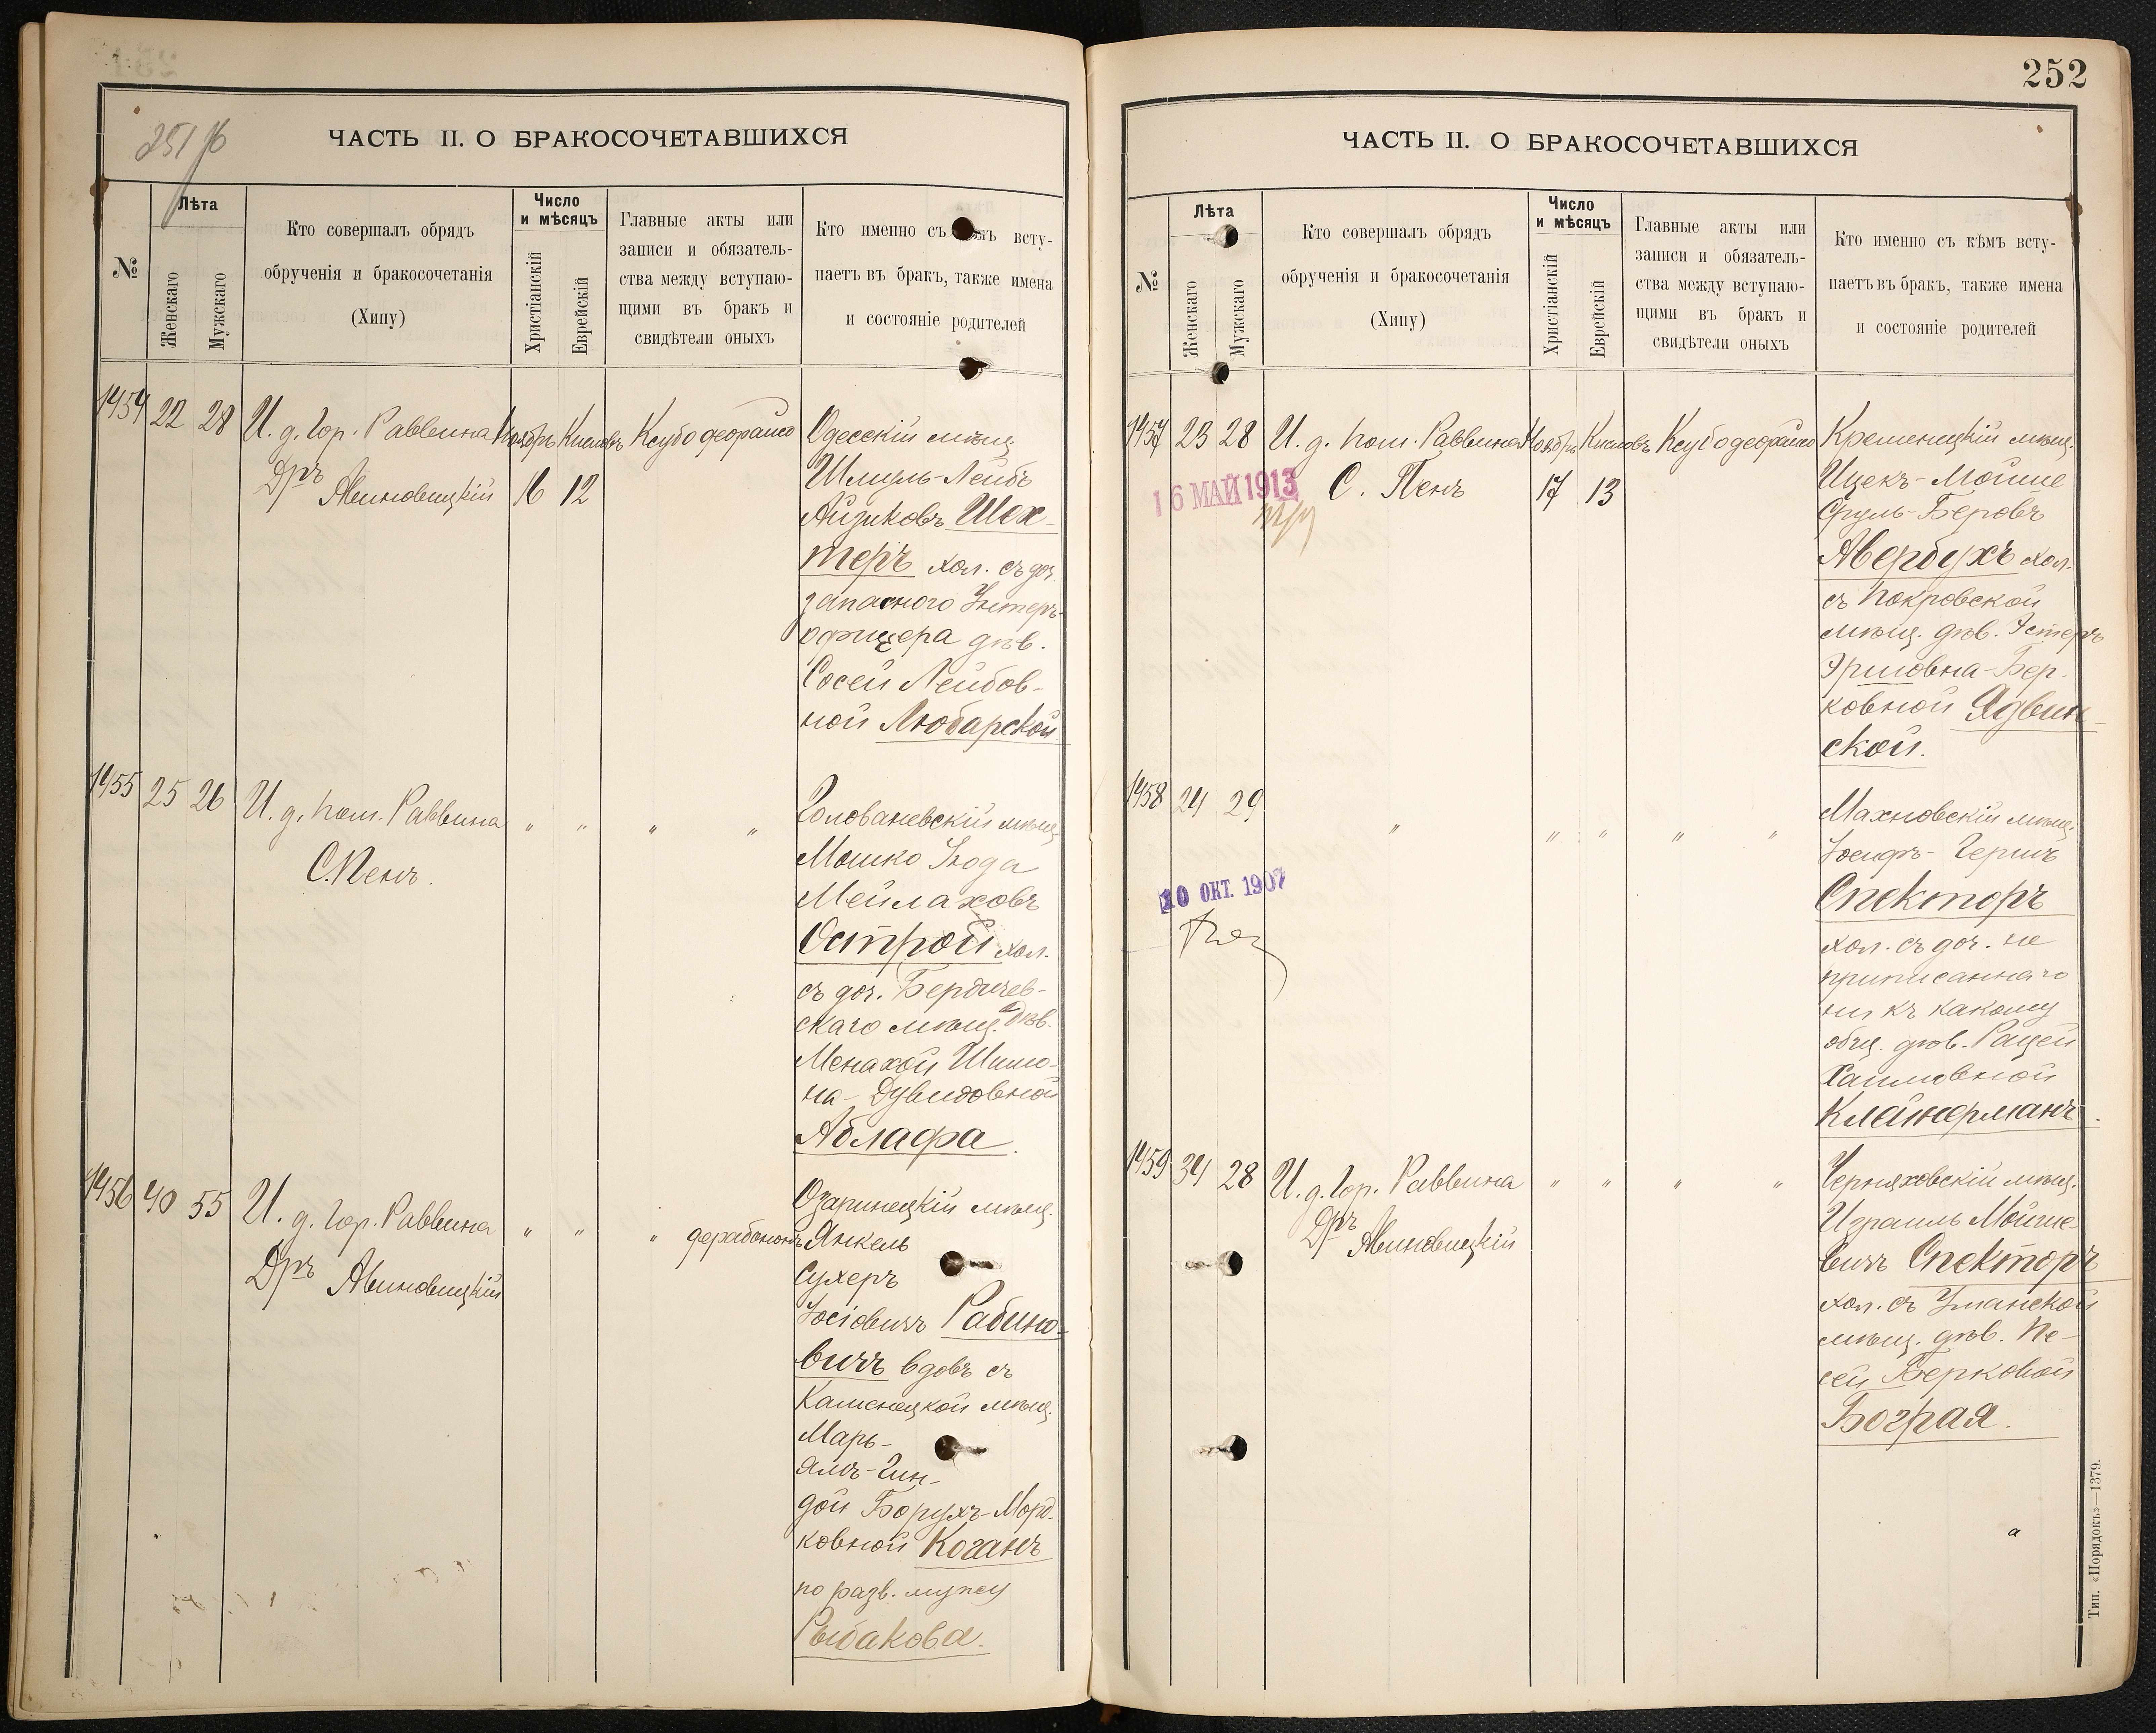 251 об
ЧАСТЬ II. О БРАКОСОЧЕТАВШИХСЯ
№
Лѣта
Женскаго
Мужскаго
Кто совершалъ обрядъ
обрученія и бракосочетанія
(Хипу)
Число
и мѣсяцъ
Христіанскій
Еврейскій
Главные акты или
записи и обязатель-
ства между вступаю-
щими въ бракъ и
свидѣтели оныхъ
Кто именно съ всту-
паетъ въ бракъ, также имена
и состояніе родителей
1454 22 28 И. д. Гор. Раввина Ноябрь Кислевъ Ксубо деорайсо
Дръ Авиновицкій 16 12
Одесскій мѣщ.
Шмуль-Лейбъ
Айзиковъ Шех-
теръ хол. съ доч.
запасного Унтеръ-
офицера дѣв.
Сосей Лейбов-
ной Любарской
1455 25 26 И. д. пом. Раввина " " " "
С. Пенъ.
Голованевскій мѣщ.
Мошко Іода
Мейлаховъ
Острой хол.
съ доч. Бердичев-
скаго мѣщ. дѣв.
Менахой Шимо-
на-Дувидовной
Аблафа.
1456 40 55 И. д. Гор. Раввина " " " дерабононъ
Дръ Авиновицкій
Озаринецкій мѣщ.
Янкель
Сухеръ
Іосіовичъ Рабино-
вичъ вдовъ съ
Каменецкой мѣщ.
Марь-
ямъ-Гин-
дой Борухъ-Морд-
ковной Коганъ
по разв. мужу
Рыбакова.
252
ЧАСТЬ II. О БРАКОСОЧЕТАВШИХСЯ
№
Лѣта
Женскаго
Мужскаго
Кто совершалъ обрядъ
обрученія и бракосочетанія
(Хипу)
Число
и мѣсяцъ
Христіанскій
Еврейскій
Главные акты или
записи и обязатель-
ства между вступаю-
щими въ бракъ и
свидѣтели оныхъ
Кто именно съ кѣмъ всту-
паетъ въ бракъ, также имена
и состояніе родителей
1457 23 28 И. д. пом. Раввина Ноябрь Кислевъ Ксубо деорайсо
16 МАЙ 1913 С. Пенъ 17 13
Кременецкій мѣщ.
Ицекъ-Мойше
Сруль-Беровъ
Авербухъ хол.
съ Покровской
мѣщ. дѣв. Эстеръ
Эршовна-Бер-
ковной Ядвин-
ской.
1458 24 29 " " " " "
10 ОКТ. 1907
Махновскій мѣщ.
Іосифъ-Гершъ
Спекторъ
хол. съ доч. не
приписаннаго
ни къ какому
общ. дѣв. Рацей
Хаимовной
Клейнерманъ.
1459 34 28 И. д. Гор. Раввина " " " "
Дръ Авиновицкій
Черняховскій мѣщ.
Израиль Мойше-
вичъ Спекторъ
хол. съ Уманской
мѣщ. дѣв. Пе-
сей Берковой
Бограя.
Тип. «Порядокъ»—1379.